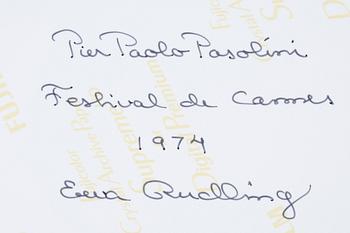 Pier Paolo Pasolini
Festival de Cannes
1974
Ewa Rudling